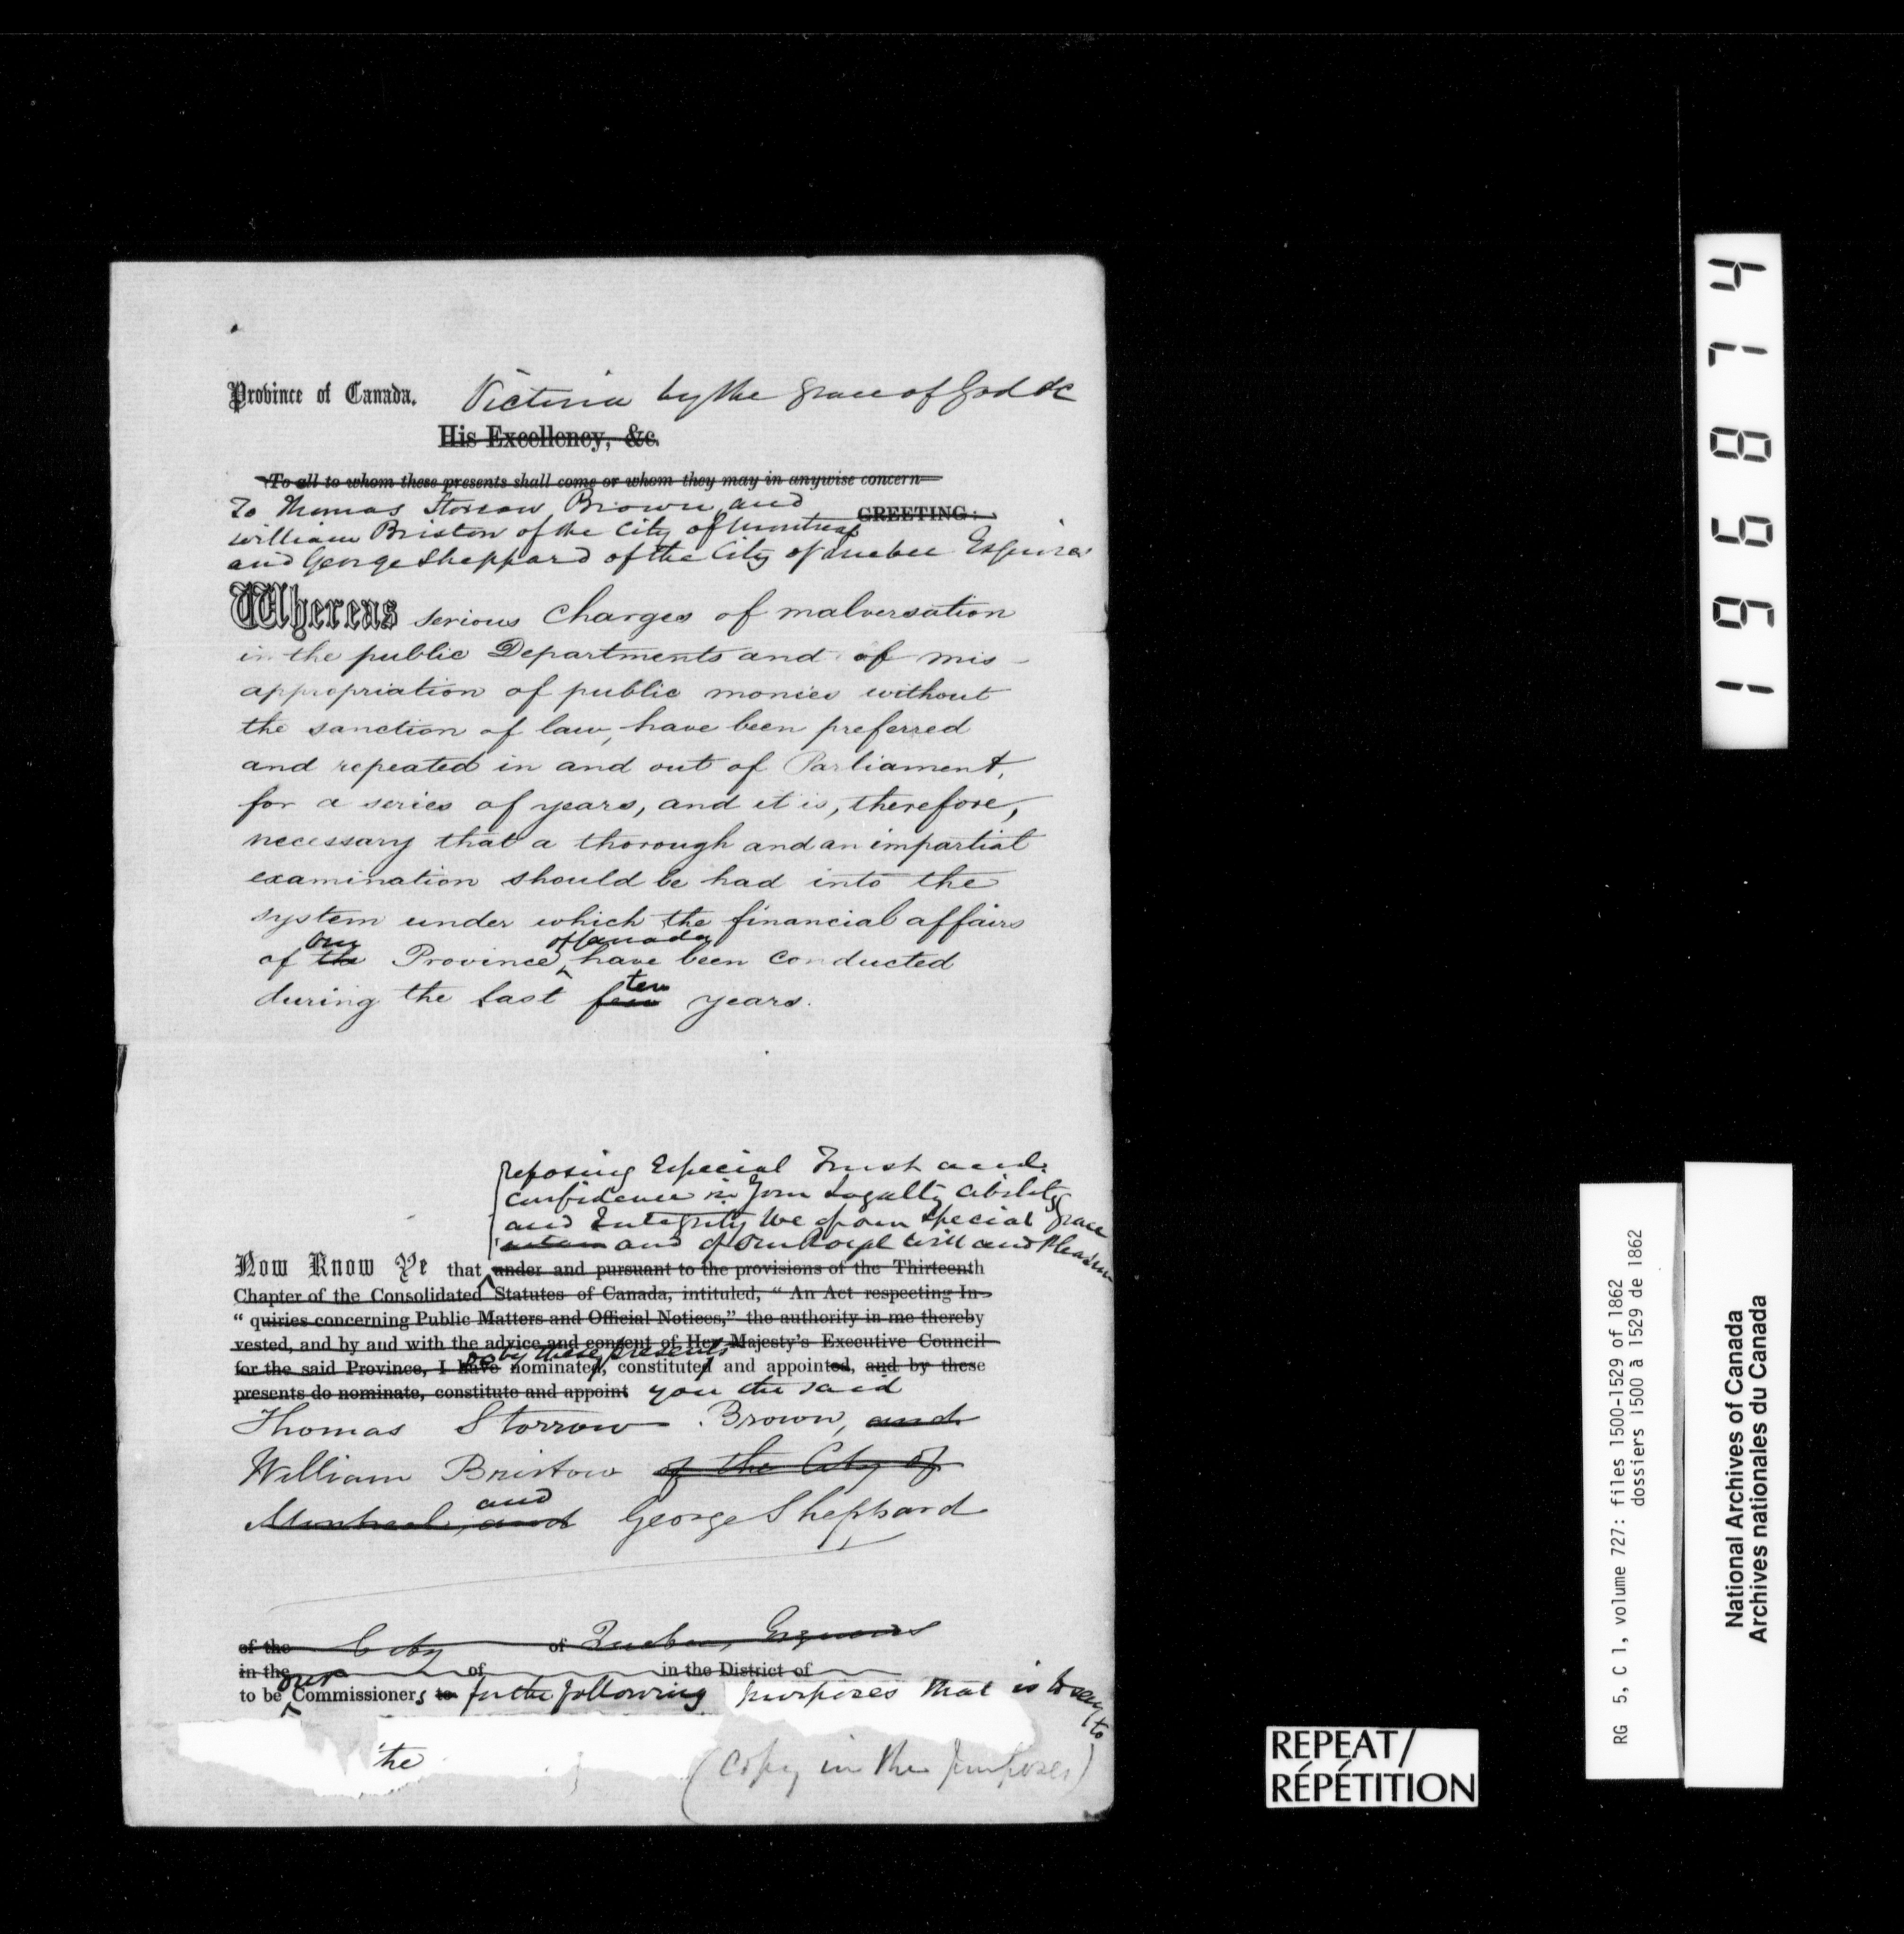 Province of Canada. Victoria by the Grace of God &c
His Excellency, &c.
To all to whom these presents shall come or whom they may in anywise concern
To Thomas Storrow Brown, and
GREETING:
William Bristow of the City of Montreal
and George Sheppard of the City of Quebec Esquires
Whereas serious charges of malversation
in the public Departments and of mis-
appropriation of public monies without
the sanction of law, have been preferred
and repeated in and out of Parliament,
for a series of years, and it is, therefore,
necessary that a thorough and an impartial
examination should be had into the
system under which the financial affairs
our of Canada
of the Province, have been conducted
ten
during the last few years.
reposing Especial Trust and
confidence in Your Loyalty ability
and Integrity We of our Special Grace
and of Our Royal Will and Pleasure
Now Know Ye that under and pursuant to the provisions of the Thirteenth
Chapter of the Consolidated Statutes of Canada, intituled, "An Act respecting In-
"quiries concerning Public Matters and Official Notices," the authority in me thereby
vested, and by and with the advice and consent of Her Majesty's Executive Council
do by these presents
for the said Province, I have nominated, constituted and appointed, and by these
presents do nominate, constitute and appoint you the said
Thomas Storrow Brown, and
William Bristow of the City of
and
Montreal, and George Sheppard
of the City of Quebec, Esquires
in the of in the District of
our
to be Commissioners to for the following purposes that is to say
to
the
(Copy in the purposes)
196874
RG 5, C 1, volume 727: files 1500-1529 of 1862
dossiers 1500 à 1529 de 1862
National Archives of Canada
Archives nationales du Canada
REPEAT/
RÉPÉTITION